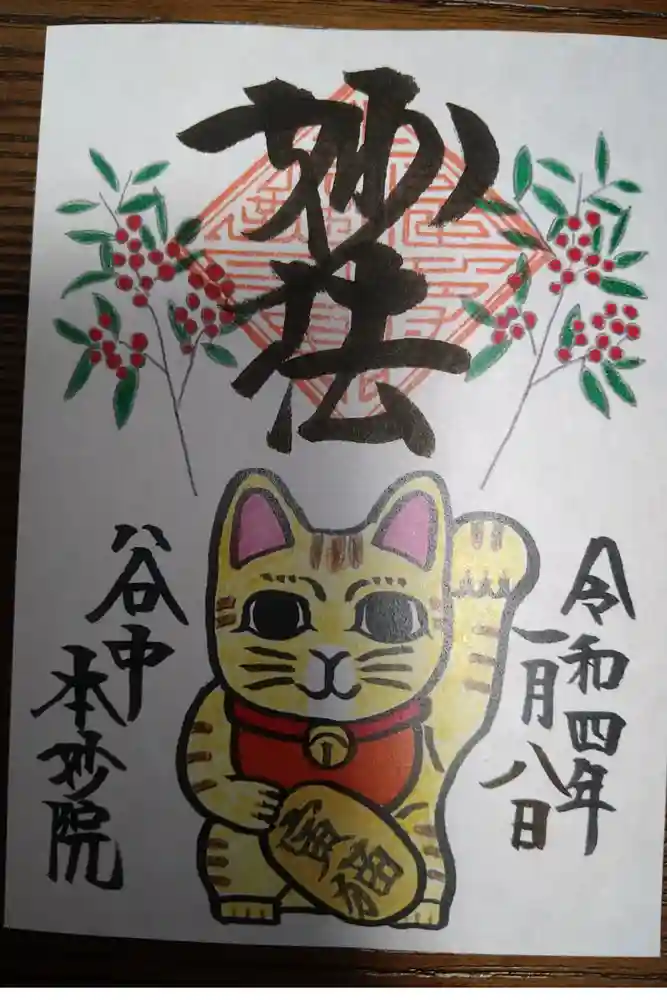 妙法
令和四年
一月八日
谷中
本妙院
寳猫